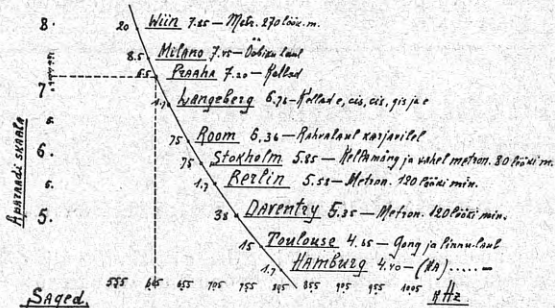 8. 20 Wiin 7.85 — Metr. 270 lööx. m.
8.5 Milano 7.45 — Ööbiku laul
6.5 Praaha 7.20 — Kellad
7.
1.7 Langeberg 6.76 — Kellad e, cis, cis, gis ja e
75 Room 6.36 — Rahvalaul karjavilel
6. 75 Stokholm 5.85 — Kellamäng ja vahel metron. 80 lööki m.
5. 1.7 Berlin 5.53 — Metron. 120 lööki min.
5. 38 Daventry 5.25 — Metron. 120 lööki min.
15 Toulouse 4.65 — Gong ja linnu-laul
1.7 Hamburg 4.40 — (HA) ......–
555 605 655 705 755 805 855 905 955 1005 kHz
Saged.
Aparaadi skaala